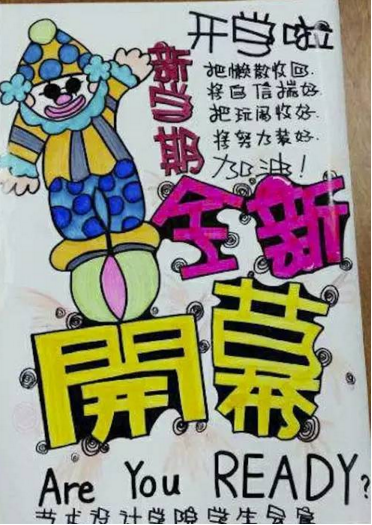 开学啦
把懒散收回.
将自信揣好.
把玩闹收好.
将努力装好.
加油!
全新
開幕
Are You READY?
艺术设计学院学生